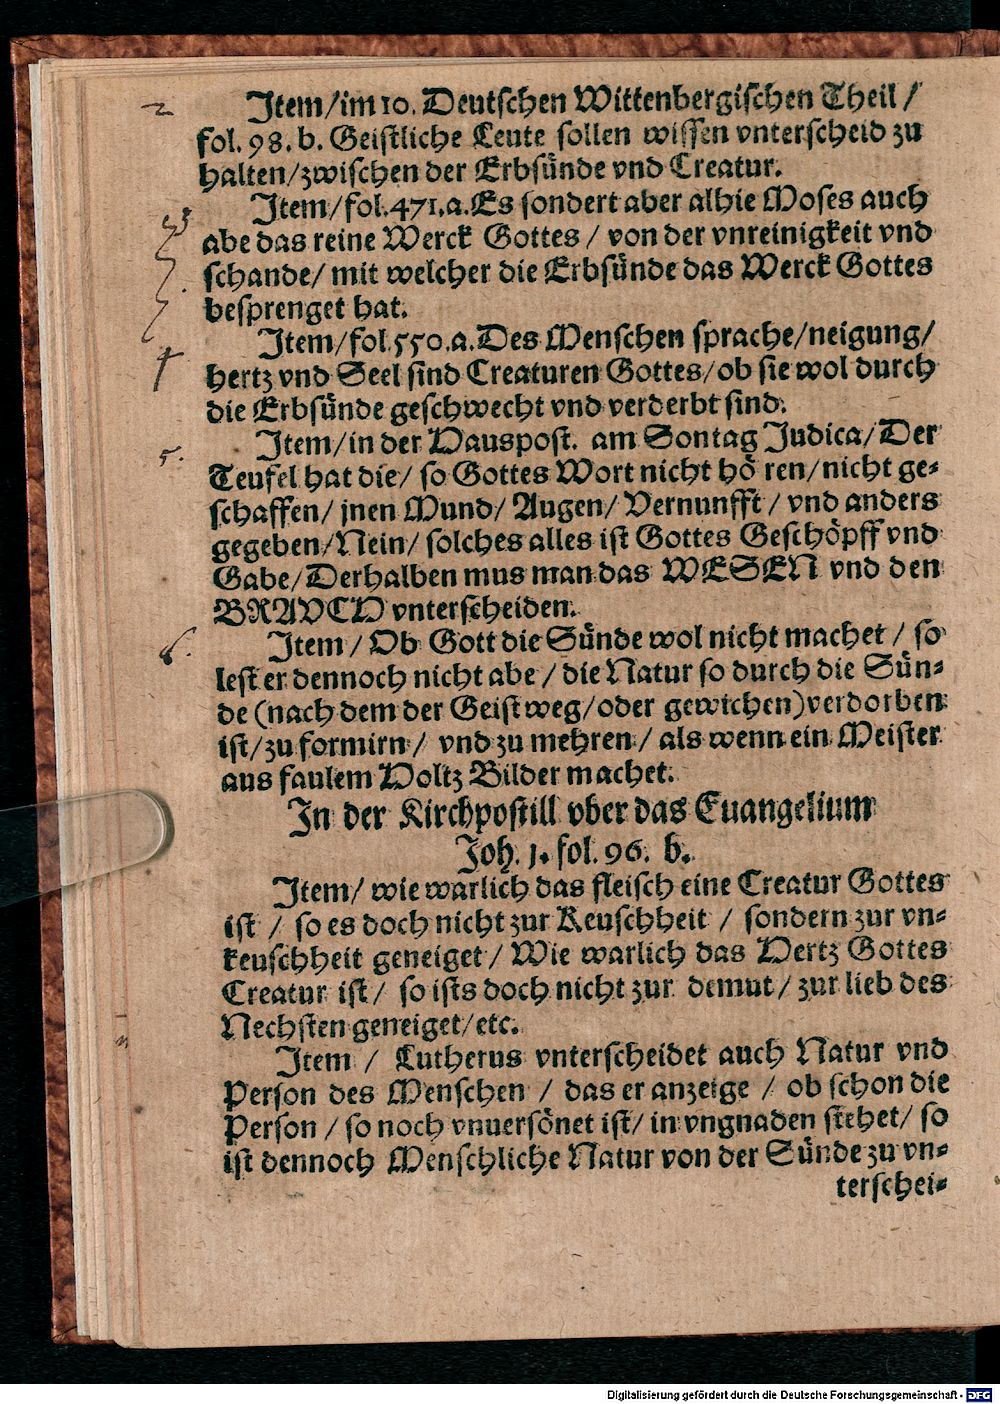 2
Item/im 10. Deutschen Wittenbergischen Theil /
fol. 98. b. Geistliche Leute sollen wissen vnterscheid zu
halten/zwischen der Erbsünde vnd Creatur.
Item/fol.471.a.Es sondert aber alhie Moses auch
abe das reine Werck Gottes / von der vnreinigkeit vnd
schande/ mit welcher die Erbsünde das Werck Gottes
besprenget hat.
Item/fol.550.a.Des Menschen sprache/neigung/
hertz vnd Seel sind Creaturen Gottes/ob sie wol durch
die Erbsünde geschwecht vnd verderbt sind.
5.
Item/in der Hauspost. am Sontag Judica/Der
Teufel hat die/ so Gottes Wort nicht hö ren/nicht ge-
schaffen/ jnen Mund/ Augen/ Vernunfft / vnd anders
gegeben/Nein/ solches alles ist Gottes Geschöpff vnd
Gabe/Derhalben mus man das WESEN vnd den
BRAVCH vnterscheiden.
6.
Item / Ob Gott die Sünde wol nicht machet / so
lest er dennoch nicht abe / die Natur so durch die Sün-
de (nach dem der Geist weg/oder gewichen)verdorben
ist/zu formirn / vnd zu mehren / als wenn ein Meister
aus faulem Holtz Bilder machet.
In der Kirchpostill vber das Euangelium
Joh. 1. fol. 96. b.
Item/ wie warlich das fleisch eine Creatur Gottes
ist / so es doch nicht zur Keuschheit / sondern zur vn-
keuschheit geneiget / Wie warlich das Hertz Gottes
Creatur ist / so ists doch nicht zur demut / zur lieb des
Nechsten geneiget/etc.
Item / Lutherus vnterscheidet auch Natur vnd
Person des Menschen / das er anzeige / ob schon die
Person / so noch vnuersönet ist/ in vngnaden stehet/ so
ist dennoch Menschliche Natur von der Sünde zu vn-
terschei-
Digitalisierung gefördert durch die Deutsche Forschungsgemeinschaft - DFG